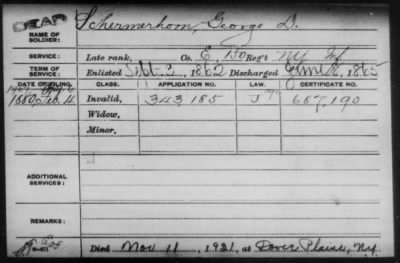 DEAD
NAME OF SOLDIER: Schermerhorn, George D.
SERVICE: Late rank, Co. E, 150 Reg't NY Inf.
TERM OF SERVICE: Enlisted Sept. 3, 1862 Discharged June 8, 1865
DATE OF FILING. CLASS. APPLICATION NO. LAW. CERTIFICATE NO.
1880 Feb. 4. Invalid, 343 185 J 687,190
Widow,
Minor,
ADDITIONAL SERVICES:
REMARKS:
Died Nov 11, 1921, at Dover Plains, N.Y.